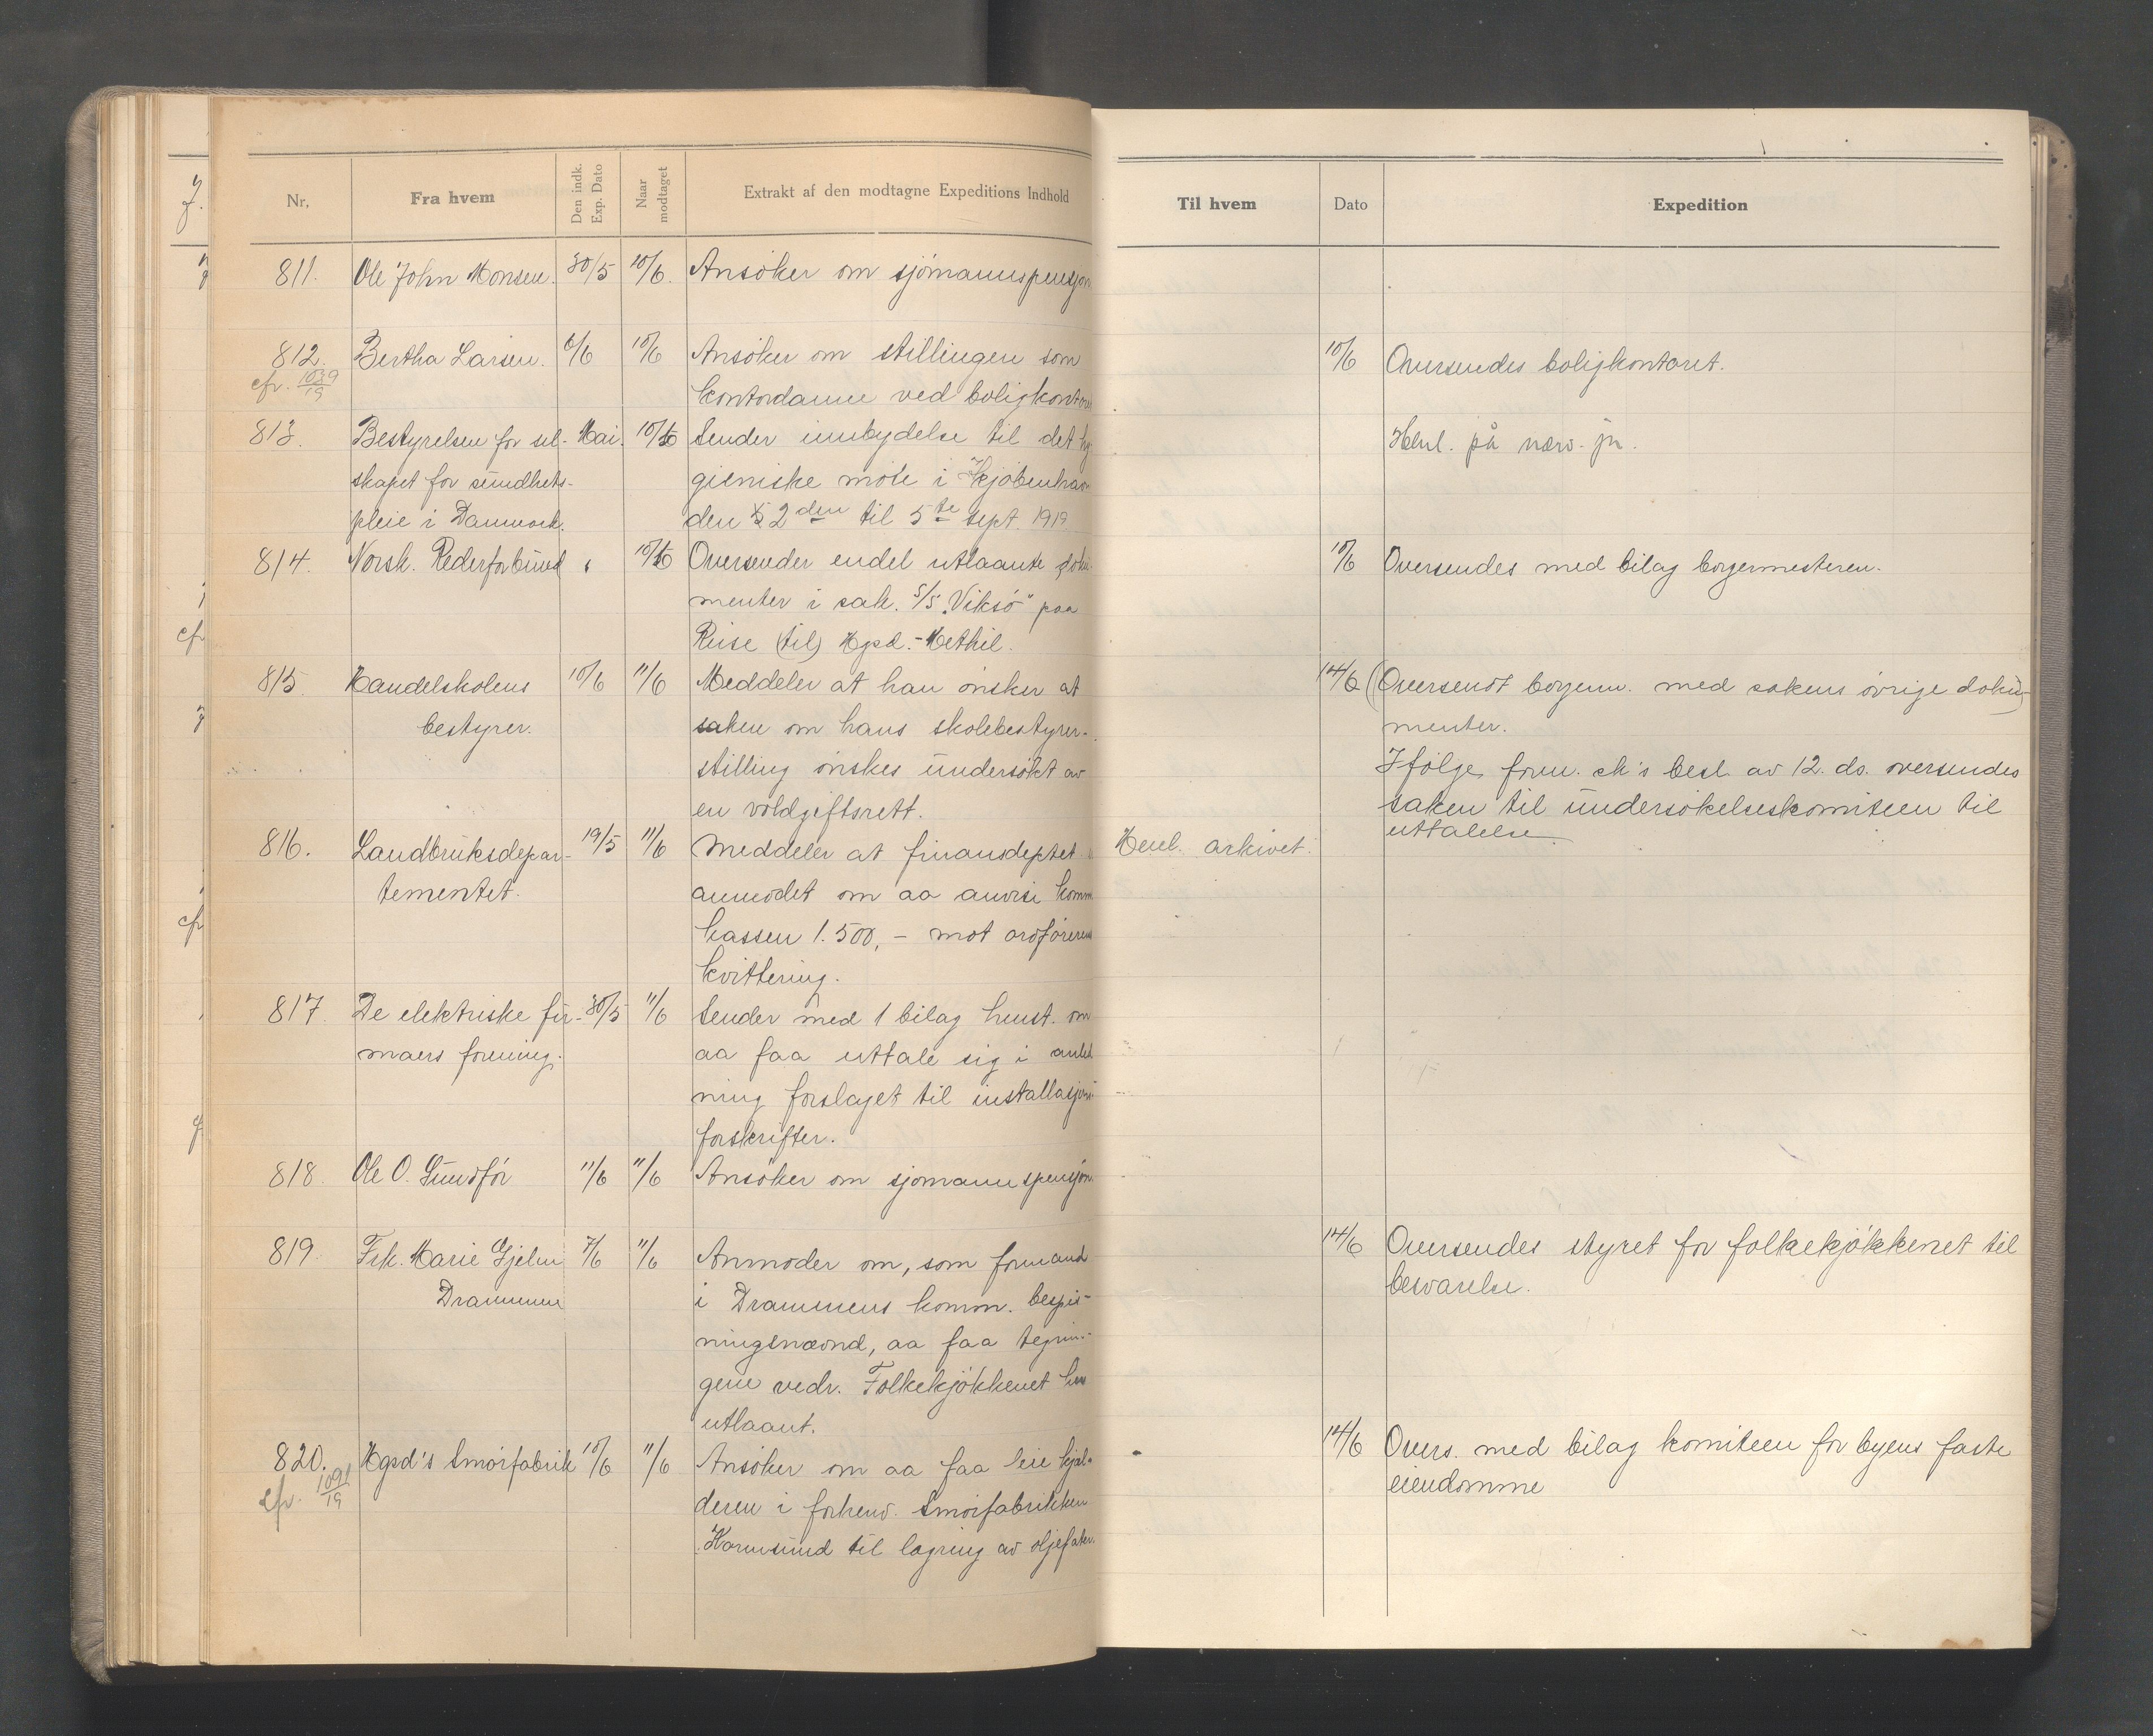 Nr.
Fra hvem
Den indk. Exp. Dato
Naar modtaget
Extrakt af den modtagne Expeditions Indhold
811. Ole John Monsen. 30/5 10/6. Ansöker om sjömannspensjon
812. Bertha Larsen. 6/6 10/6 Ansöker om stillingen som
cfr. 1039/19
kontordame ved boligkontoret
813. Bestyrelsen for sel- Mai. 10/6 Sender innbydelse til det hy-
skapet for sundhets- gieniske möte i Kjöbenhavn
pleie i Danmark. den 2den til 5te sept. 1919
814. Norsk. Rederforbund 10/6 Oversender endel utlaante doku-
menter i sak. S/S "Viksö" paa
Reise (til) Hgsd.-Methil.
815. Handelskolens 10/6 11/6 Meddeler at han önsker at
bestyrer. saken om hans skolebestyrer-
stilling önskes undersökt av
en voldgiftsrett.
816. Landbruksdepar- 19/5 11/6 Meddeler at finansdeptet
tementet. anmodet om aa anvise komm
kassen 1.500,- mot ordförerens
kvittering.
817 De elektriske fir- 30/5 11/6 Sender med 1 bilag henst. om
maers forening. aa faa uttale sig i anled
ning forslaget til installasjons
forskrifter.
818. Ole O. Sundför 11/6 11/6 Ansöker om sjomannspensjon.
819. Frk. Marie Gjelm 7/6 11/6 Anmoder om, som formand
Drammen i Drammens komm. bespis-
ningsnævnd, aa faa tegnin-
gene vedr. Folkekjökkenet her
utlaant.
820. Hgsd's Smörfabrik 10/6 11/6 Ansöker om aa faa leie kjel-
cfr. 1091/19
deren i forhenv. Smörfabrikken
Karmsund til lagring av oljefater.
Til hvem
Dato
Expedition
10/6 Oversendes boligkontoret.
Henl. på nærv. jn.
10/6 Oversendes med bilag borgermesteren.
14/6 (Oversendt borgerm. med sakens övrige doku-
menter.)
Ifölge form. sk's besl. av 12. ds. oversendes
saken til undersökelseskomiteen til
uttalelse
Henl. arkivet.
14/6 Oversendes styret for folkekjökkenet til
besvarelse.
14/6 Overs. med bilag komiteen for byens faste
eiendomme